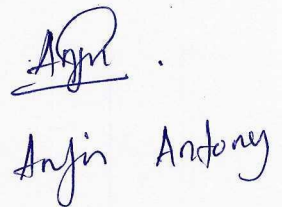 Anjin .
Anjin Antony